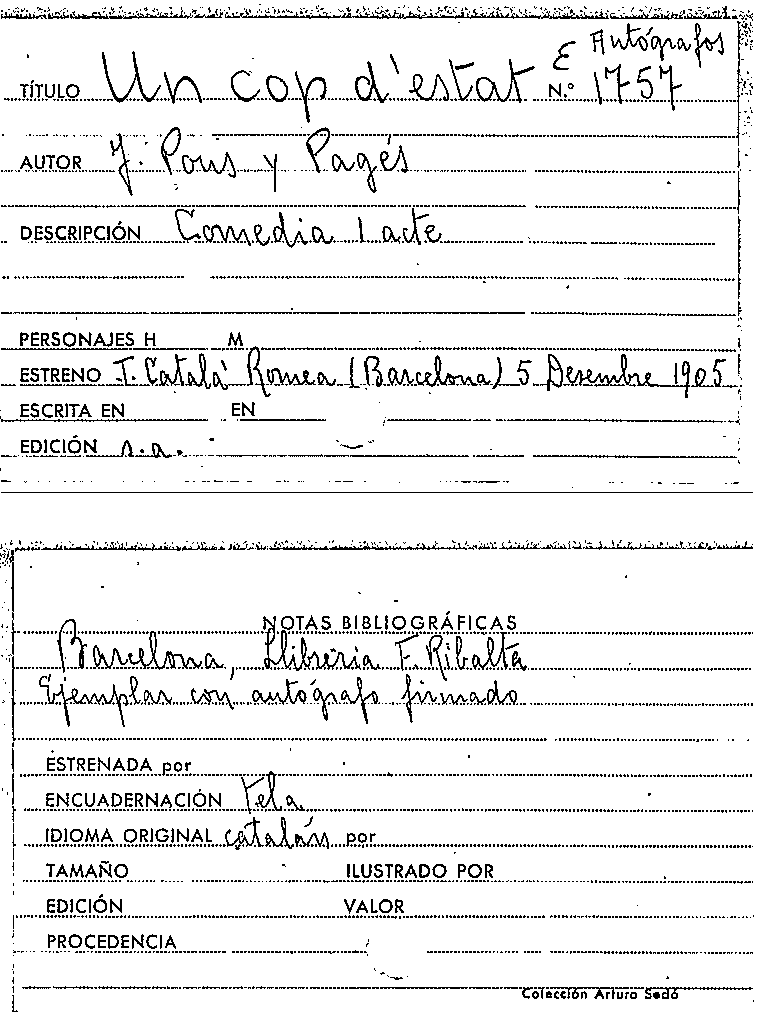 E Autógrafos
TÍTULO Un cop d'estat N.º 1757
AUTOR J. Pous y Pagés
DESCRIPCIÓN Comedia 1 acte
PERSONAJES H M
ESTRENO T. Catalá Romea (Barcelona) 5 Desembre 1905
ESCRITA EN EN
EDICIÓN s.a.
NOTAS BIBLIOGRÁFICAS
Barcelona, Llibreria F. Ribalta
Ejemplar con autógrafo firmado
ESTRENADA por
ENCUADERNACIÓN Tela
IDIOMA ORIGINAL catalán por
TAMAÑO ILUSTRADO POR
EDICIÓN VALOR
PROCEDENCIA
Colección Arturo Sedó